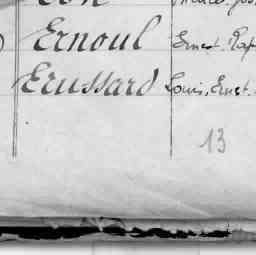 Ernoul Ernest, Rap
Erussard Louis, Ernest.
13